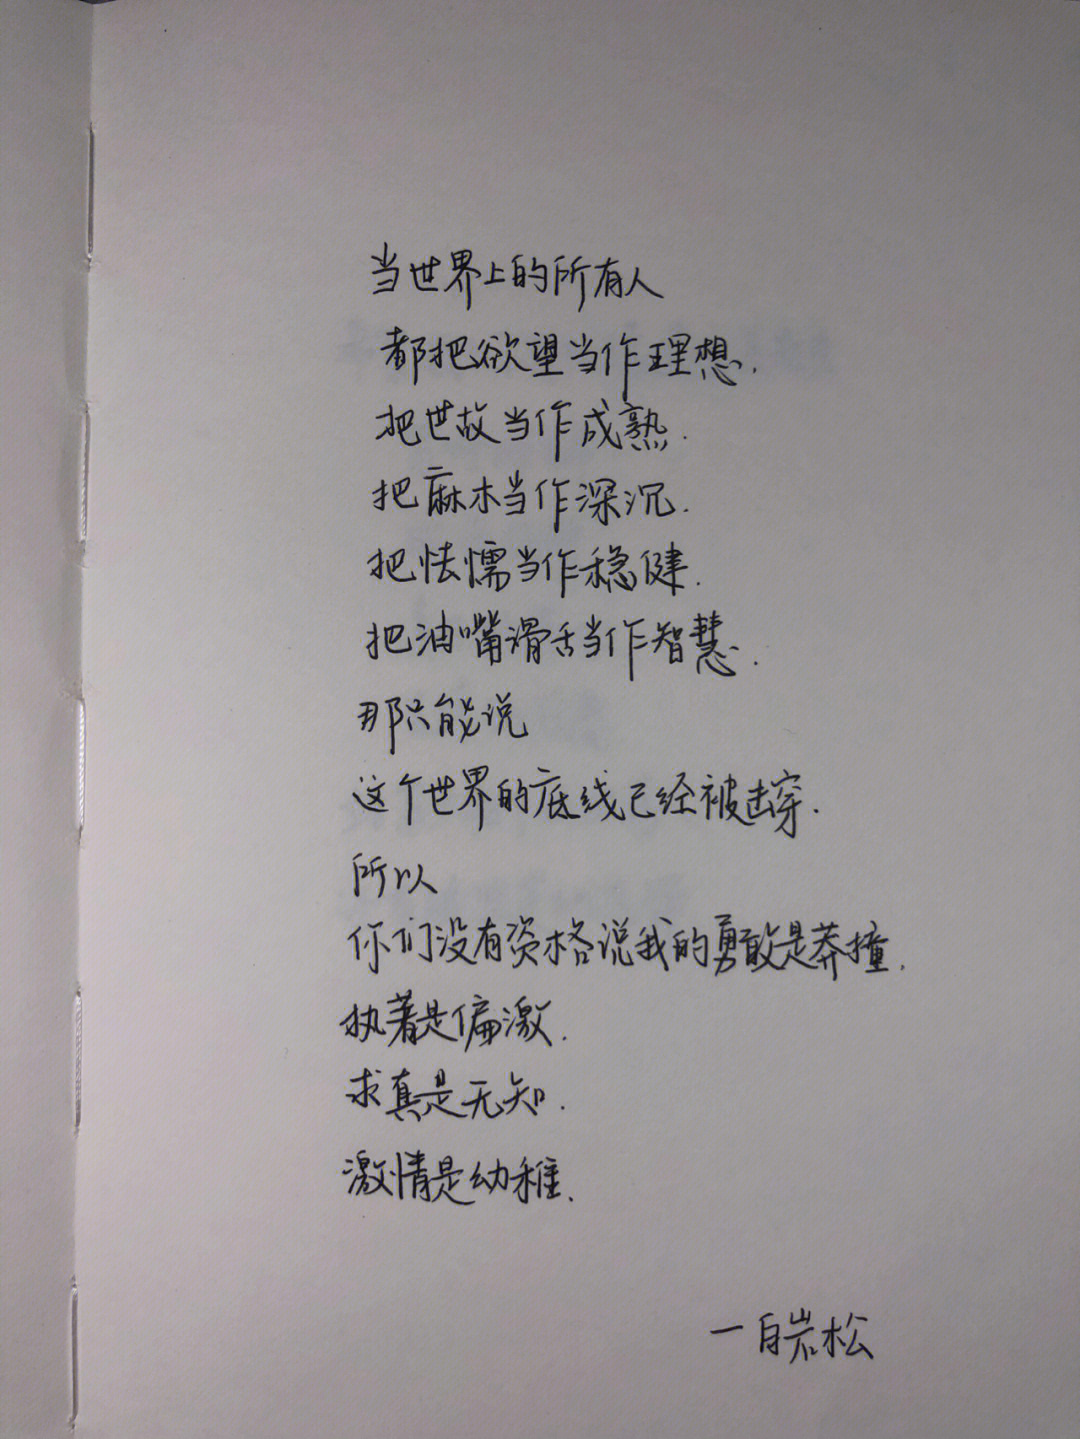 当世界上的所有人
都把欲望当作理想.
把世故当作成熟.
把麻木当作深沉.
把怯懦当作稳健.
把油嘴滑舌当作智慧.
那只能说
这个世界的底线已经被击穿.
所以
你们没有资格说我的勇敢是莽撞.
执着是偏激.
求真是无知.
激情是幼稚.
一白岩松